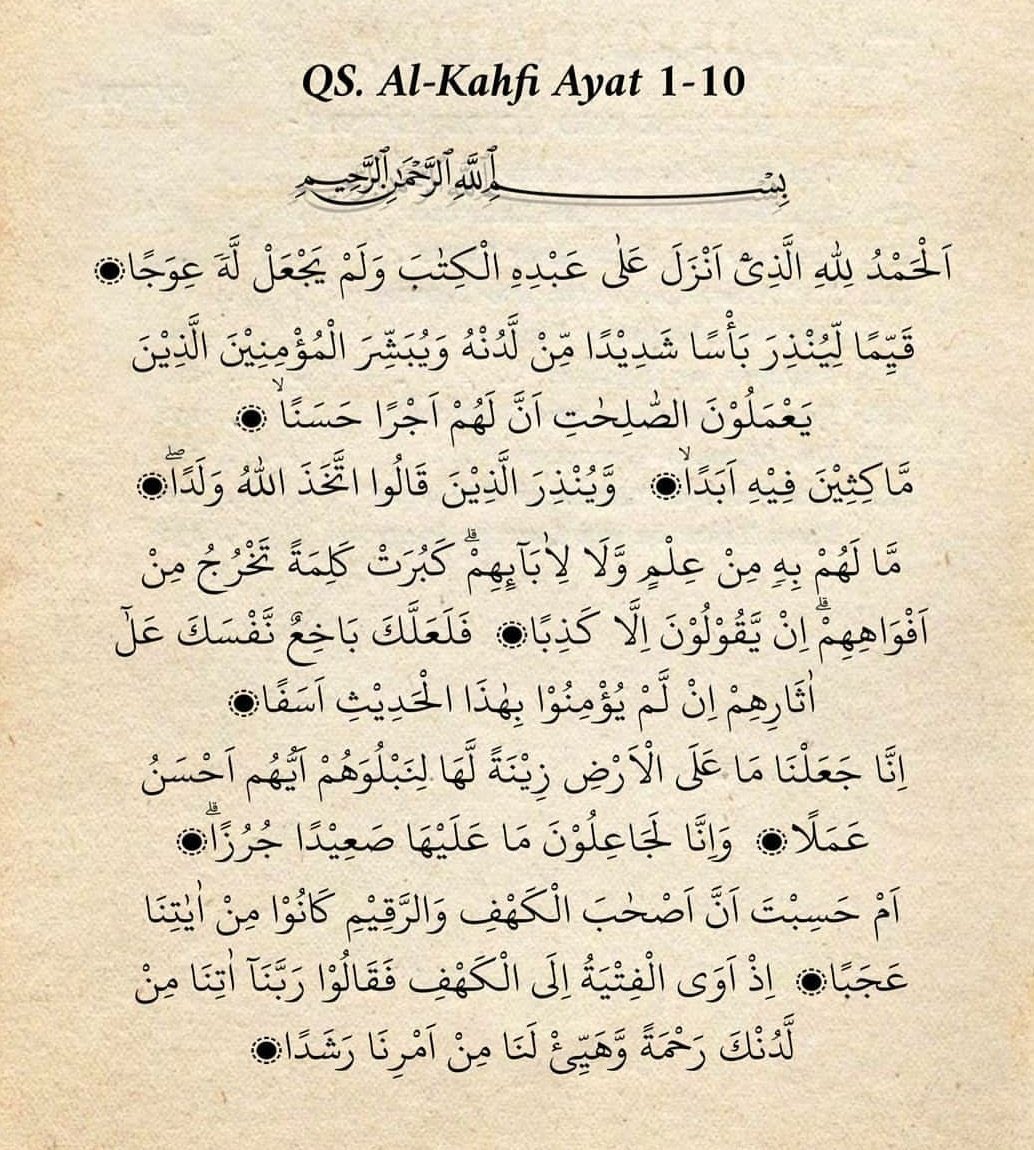 QS. Al-Kahfi Ayat 1-10
بِسْمِ ٱللَّهِ ٱلرَّحْمَٰنِ ٱلرَّحِيمِ
اَلْحَمْدُ لِلّٰهِ الَّذِيْٓ اَنْزَلَ عَلٰى عَبْدِهِ الْكِتٰبَ وَلَمْ يَجْعَلْ لَّهٗ عِوَجًا
قَيِّمًا لِّيُنْذِرَ بَأْسًا شَدِيْدًا مِّنْ لَّدُنْهُ وَيُبَشِّرَ الْمُؤْمِنِيْنَ الَّذِيْنَ
يَعْمَلُوْنَ الصّٰلِحٰتِ اَنَّ لَهُمْ اَجْرًا حَسَنًاۙ
مَّاكِثِيْنَ فِيْهِ اَبَدًاۙ وَّيُنْذِرَ الَّذِيْنَ قَالُوا اتَّخَذَ اللّٰهُ وَلَدًاۖ
مَّا لَهُمْ بِهٖ مِنْ عِلْمٍ وَّلَا لِاٰبَاۤىِٕهِمْۗ كَبُرَتْ كَلِمَةً تَخْرُجُ مِنْ
اَفْوَاهِهِمْۗ اِنْ يَّقُوْلُوْنَ اِلَّا كَذِبًا فَلَعَلَّكَ بَاخِعٌ نَّفْسَكَ عَلٰٓ
اٰثَارِهِمْ اِنْ لَّمْ يُؤْمِنُوْا بِهٰذَا الْحَدِيْثِ اَسَفًا
اِنَّا جَعَلْنَا مَا عَلَى الْاَرْضِ زِيْنَةً لَّهَا لِنَبْلُوَهُمْ اَيُّهُم اَحْسَنُ
عَمَلًا وَاِنَّا لَجَاعِلُوْنَ مَا عَلَيْهَا صَعِيْدًا جُرُزًاۗ
اَمْ حَسِبْتَ اَنَّ اَصْحٰبَ الْكَهْفِ وَالرَّقِيْمِ كَانُوْا مِنْ اٰيٰتِنَا
عَجَبًا اِذْ اَوَى الْفِتْيَةُ اِلَى الْكَهْفِ فَقَالُوْا رَبَّنَآ اٰتِنَا مِنْ
لَّدُنْكَ رَحْمَةً وَّهَيِّئْ لَنَا مِنْ اَمْرِنَا رَشَدًا